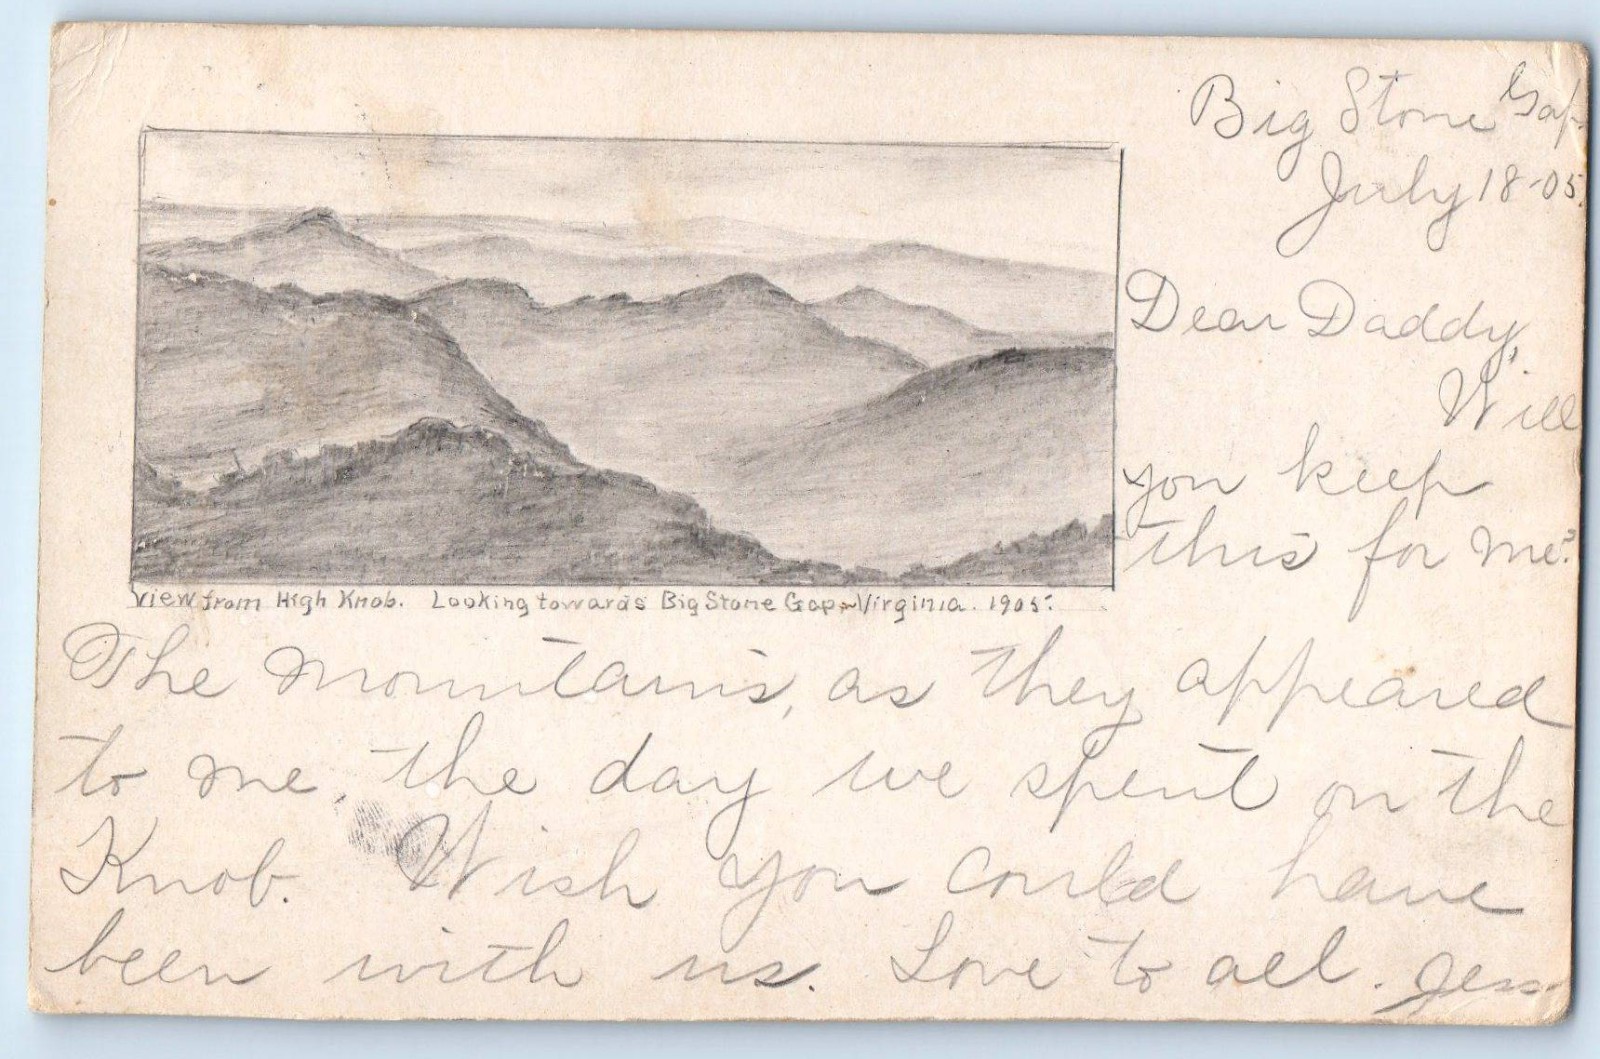 Big Stone Gap
July 18-05.
Dear Daddy,
Will
you keep
this for me?
View from High Knob. Looking towards Big Stone Gap~Virginia. 1905.
The mountains, as they appeared
to me, the day we spent on the
Knob. Wish you could have
been with us. Love to all. Jess.